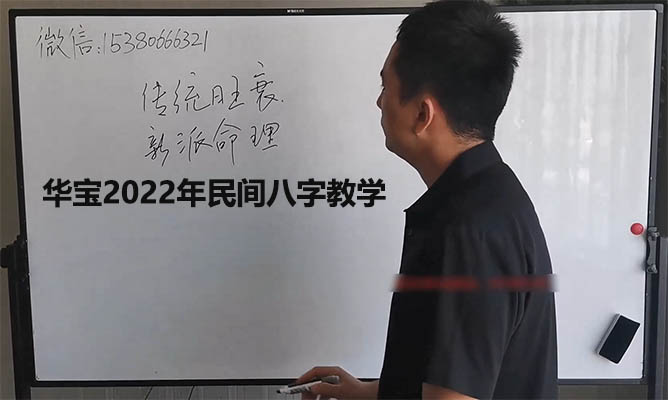 微信:15380666321
传统旺衰.
新派命理
华宝2022年民间八字教学